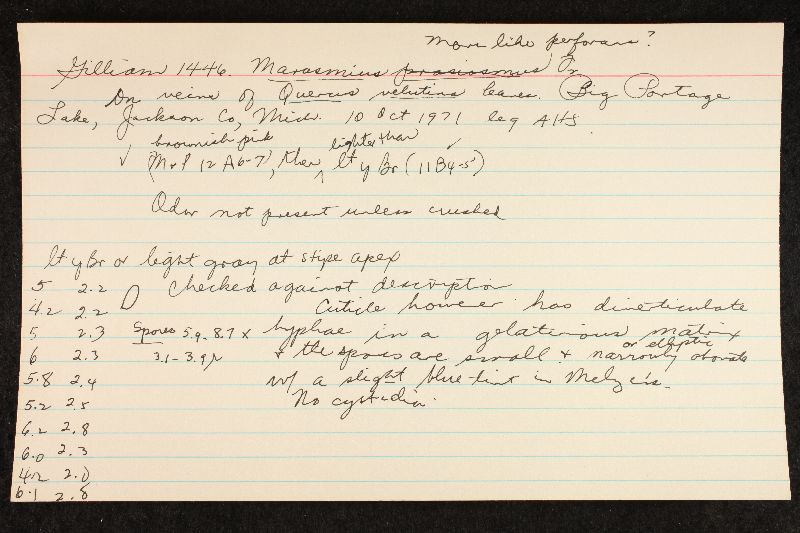 more like perforans?
Gilliam 1446. Marasmius prasiosmus Fr
On veins of Quercus velutina leaves. Big Portage
Lake, Jackson Co, Mich. 10 Oct 1971 leg AHS
brownish pink lighter than
✓ (M+P 12 A6-7), then ^ lt y Br (11B4-5) ✓
Odor not present unless crushed
lt y Br or light gray at stipe apex
5 2.2 checked against description
4.2 2.2 Cuticle however has diverticulate
5 2.3 Spores 5.9-8.7 x hyphae in a gelatinous matrix
or elliptic
6 2.3 3.1-3.9µ & the spores are small & narrowly obovate
5.8 2.4 w/ a slight blue-tint in Melzer's.
5.2 2.5 No cystidia.
6.2 2.8
6.0 2.3
4.2 2.0
6.1 2.8